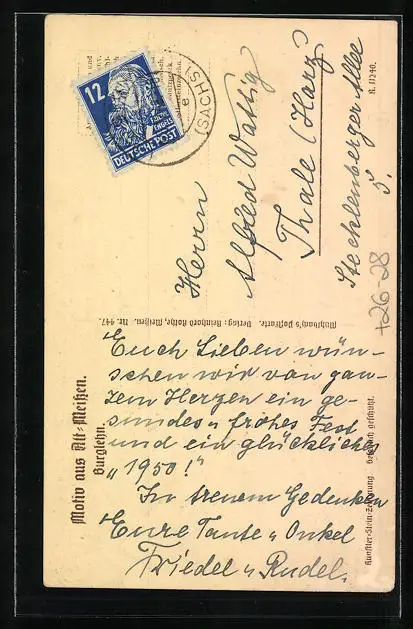 12
FRIEDR. ENGELS
DEUTSCHE POST
(SACHS)
e
Herrn
Alfred Wattig
Thale (Harz
Stecklenberger Allee
5.
R. 11240.
+26-28
Motiv aus Alt-Meißen.
Burglehn.
Verlag: Reinhard Rothe, Meißen. Nr. 447.
Künstler-Stein-Zeichnung Gesetzlich geschützt.
Euch Lieben wün-
schen wir von gan-
zem Herzen ein ge-
sundes u frohes Fest
und ein glückliches
"1950!"
In treuem Gedenken
Eure Tante u Onkel
Friedel u Rudel.